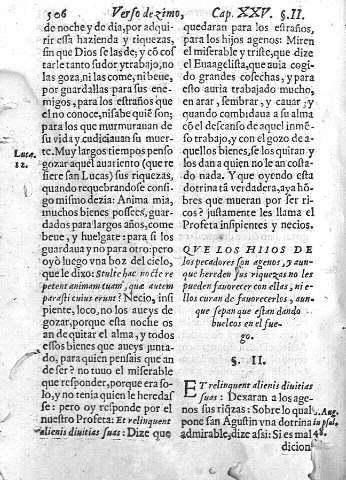 506 Verso dezimo, Cap. XXV. §. II.
de noche y de dia, por adqui-
rir essa hazienda y riquezas,
sin que Dios se las de; y cõ cos
tarle tanto sudor y trabajo, no
las goza, ni las come, ni beue, por
guardallas para sus ene-
migos, para los estraños que
el no conoce, ni sabe quiẽ son;
para los que murmurauan de
su vida y cudiciauan su muer-
te. Muy largos tiempos penso
gozar aquel auariento (que re
fiere san Lucas) sus riquezas,
quando requebrandose consi-
go mismo dezia: Anima mia,
muchos bienes posseés, guar-
dados para largos años, come
beue, y huelgate: para si los
guardaua y no para otro: pero
oyò luego vna boz del cielo,
que le dixo: Stulte hac nocte re
petent animam tuam, quæ autem
parasti cuius erunt? Necio, insi
piente, loco, no los aueys de
gozar, porque esta noche os
an de quitar el alma, y todos
essos bienes que aueys junta-
do, para quien pensais que an
de ser? no tuuo el miserable
que responder, porque era so-
lo, y no tenia quien le heredas
se: pero oy responde por el
nuestro Profeta: Et relinquent
alienis diuitias suas: Dize que
Luca.
12.
quedaran para los estraños,
para los hijos agenos: Miren
el miserable y triste, que dize
el Euãgelista, que auia cogi-
do grandes cosechas, y para
esto auria trabajado mucho,
en arar, sembrar, y cauar; y
quando combidaua a su alma
cõ el descanso de aquel inmẽ-
so trabajo, y con el gozo de a-
quellos bienes, se los quitan y
los dan a quien no le an costa-
do nada. Y que oyendo esta
dotrina tã verdadera, aya hõ-
bres que mueran por ser ri-
cos? justamente les llama el
Profeta insipientes y necios.
QVE LOS HIIOS DE
los pecadores son agenos, y aun-
que hereden sus riquezas no les
pueden fauorecer con ellas, ni e-
llos curan de fauorecerlos, aun-
que sepan que estan dando
buelcos en el fue-
go.
§. II.
ET relinquent alienis diuitias
suas: Dexaran a los age-
nos sus riq̃zas: Sobre lo qual
pone san Agustin vna dotrina
admirable, dize assi: Si es mal
dicion
Aug.
in psal.
48.